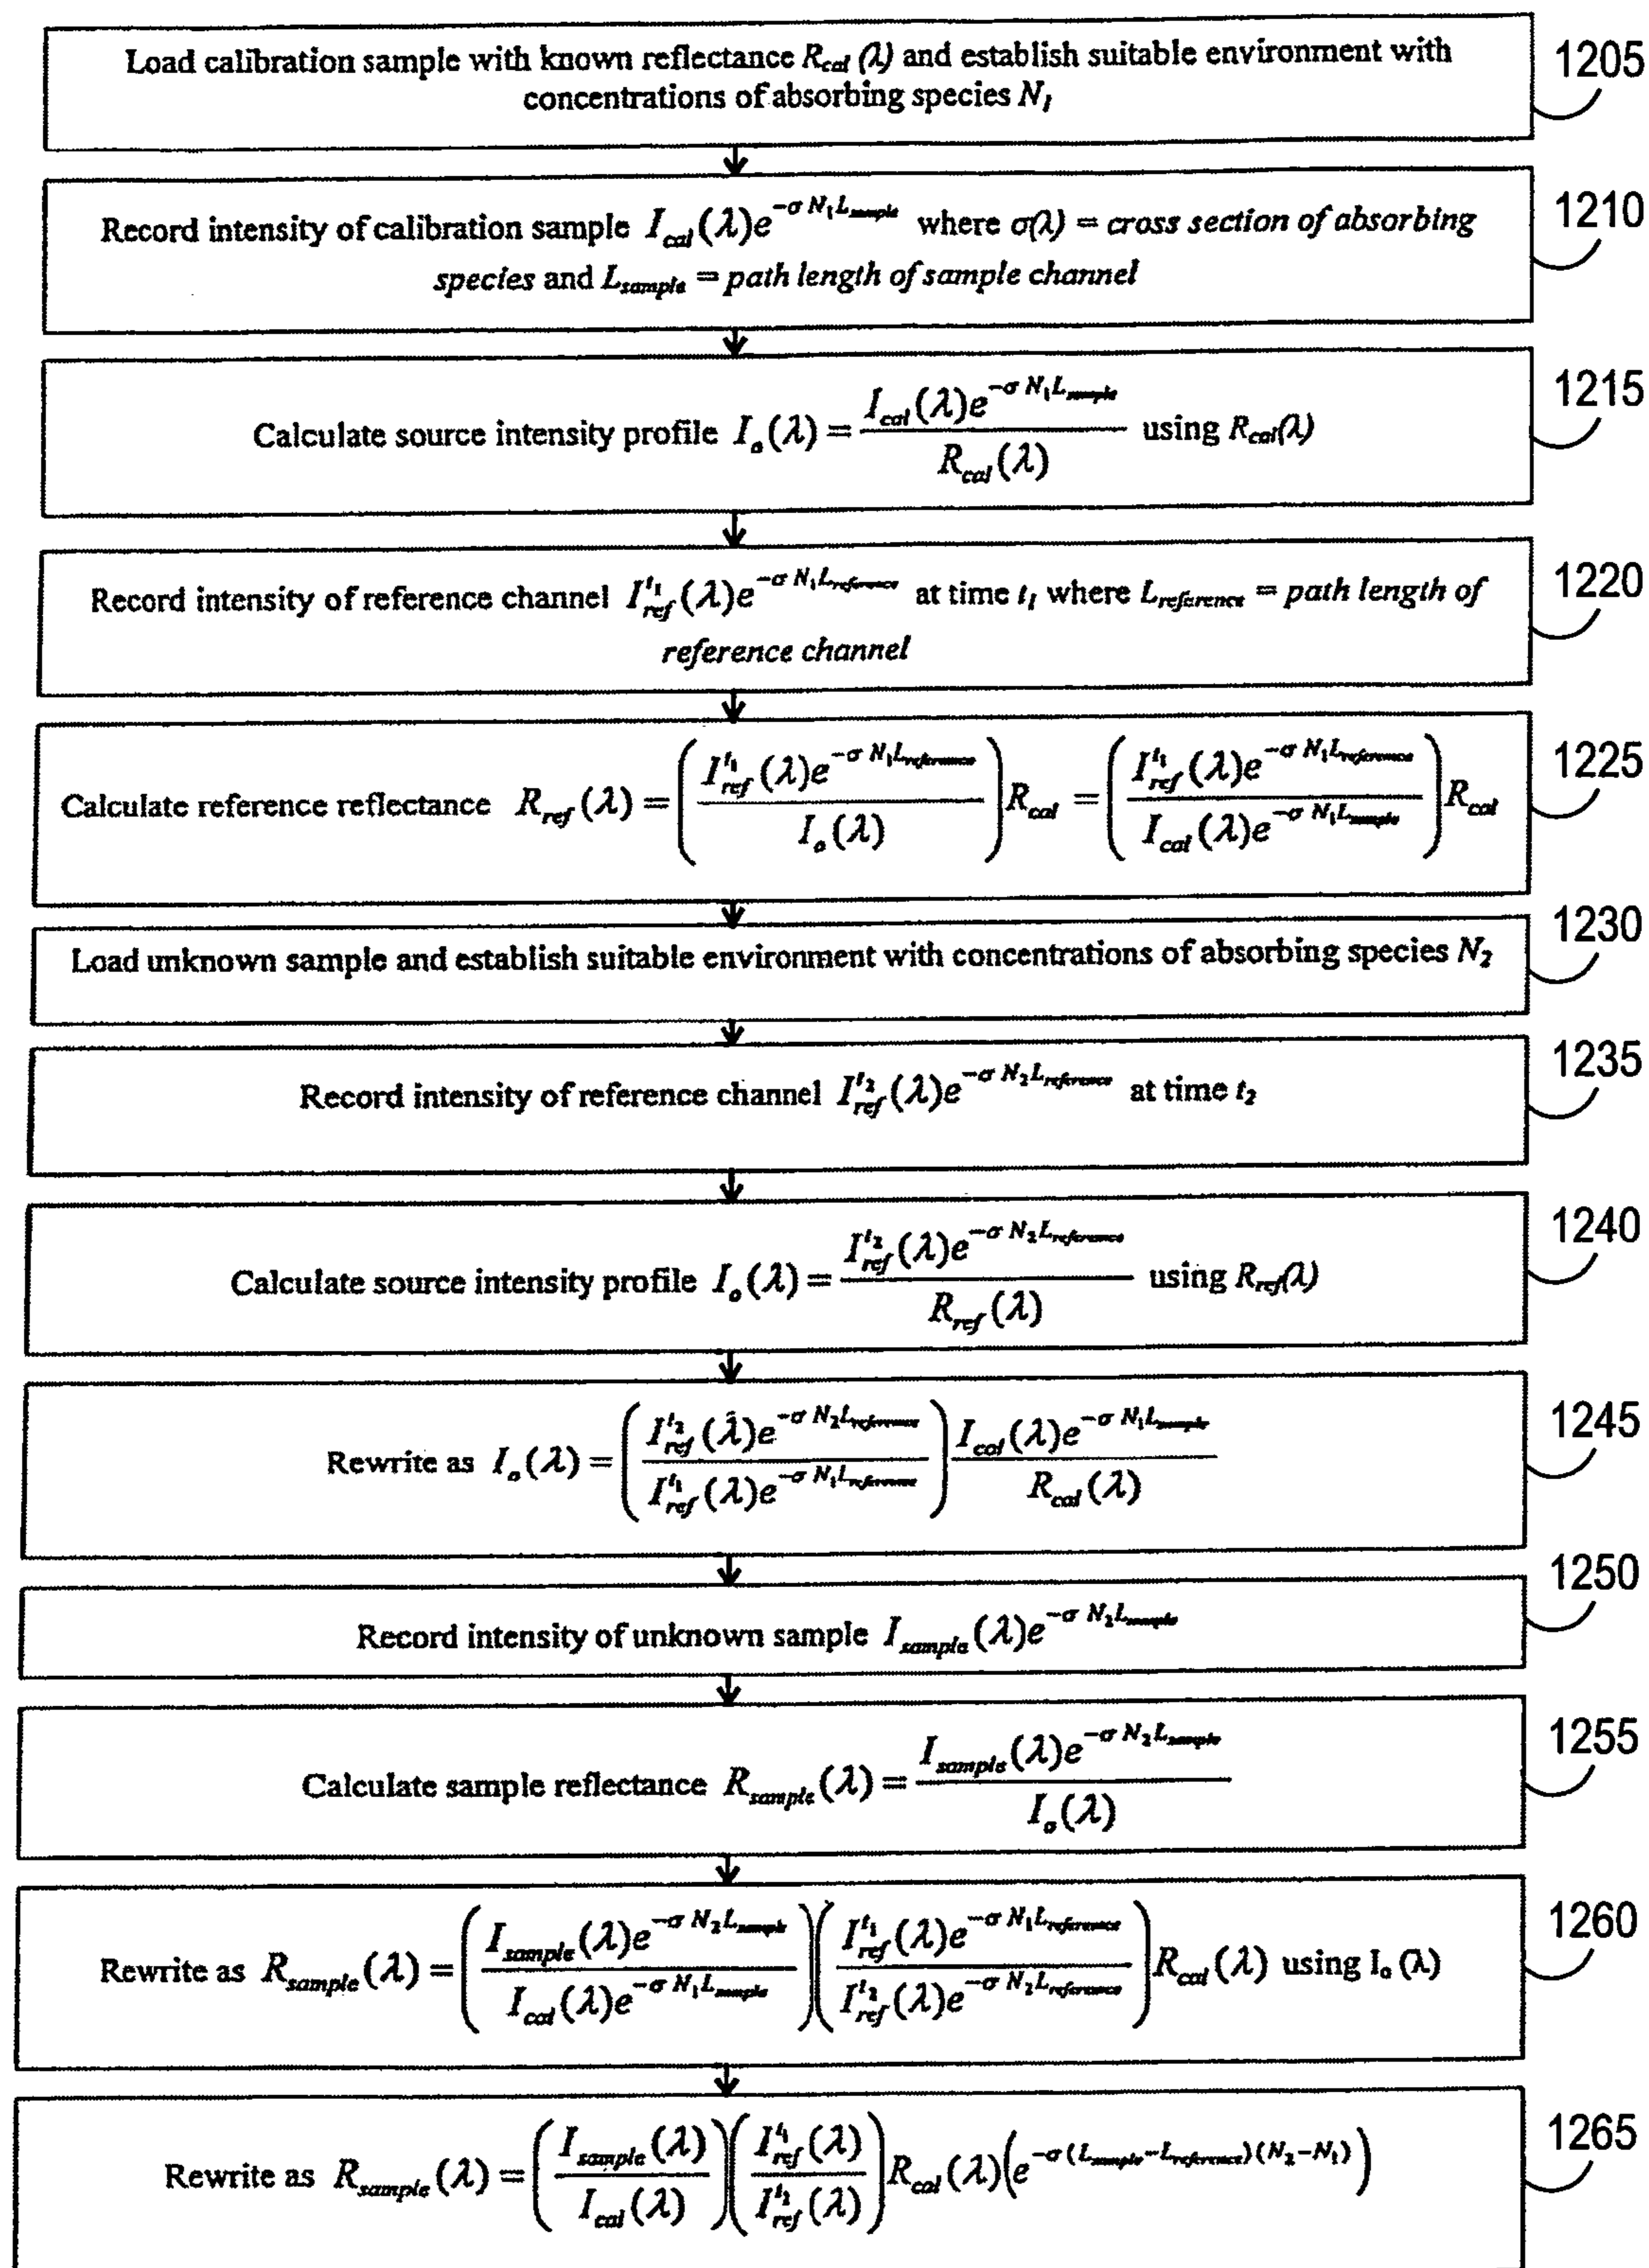 Load calibration sample with known reflectance R_cal (λ) and establish suitable environment with
concentrations of absorbing species N_1
1205
Record intensity of calibration sample I_cal(λ)e^{-σ N_1 L_sample} where σ(λ) = cross section of absorbing
species and L_sample = path length of sample channel
1210
Calculate source intensity profile I_o(λ) = \frac{I_cal(λ)e^{-σ N_1 L_sample}}{R_cal(λ)} using R_cal(λ)
1215
Record intensity of reference channel I_ref^{t_1}(λ)e^{-σ N_1 L_reference} at time t_1 where L_reference = path length of
reference channel
1220
Calculate reference reflectance R_ref(λ) = \left(\frac{I_ref^{t_1}(λ)e^{-σ N_1 L_reference}}{I_o(λ)}\right) R_cal = \left(\frac{I_ref^{t_1}(λ)e^{-σ N_1 L_reference}}{I_cal(λ)e^{-σ N_1 L_sample}}\right) R_cal
1225
Load unknown sample and establish suitable environment with concentrations of absorbing species N_2
1230
Record intensity of reference channel I_ref^{t_2}(λ)e^{-σ N_2 L_reference} at time t_2
1235
Calculate source intensity profile I_o(λ) = \frac{I_ref^{t_2}(λ)e^{-σ N_2 L_reference}}{R_ref(λ)} using R_ref(λ)
1240
Rewrite as I_o(λ) = \left(\frac{I_ref^{t_2}(λ)e^{-σ N_2 L_reference}}{I_ref^{t_1}(λ)e^{-σ N_1 L_reference}}\right) \frac{I_cal(λ)e^{-σ N_1 L_sample}}{R_cal(λ)}
1245
Record intensity of unknown sample I_sample(λ)e^{-σ N_2 L_sample}
1250
Calculate sample reflectance R_sample(λ) = \frac{I_sample(λ)e^{-σ N_2 L_sample}}{I_o(λ)}
1255
Rewrite as R_sample(λ) = \left(\frac{I_sample(λ)e^{-σ N_2 L_sample}}{I_cal(λ)e^{-σ N_1 L_sample}}\right)\left(\frac{I_ref^{t_1}(λ)e^{-σ N_1 L_reference}}{I_ref^{t_2}(λ)e^{-σ N_2 L_reference}}\right) R_cal(λ) using I_o(λ)
1260
Rewrite as R_sample(λ) = \left(\frac{I_sample(λ)}{I_cal(λ)}\right)\left(\frac{I_ref^{t_1}(λ)}{I_ref^{t_2}(λ)}\right) R_cal(λ)\left(e^{-σ (L_sample-L_reference)(N_2-N_1)}\right)
1265